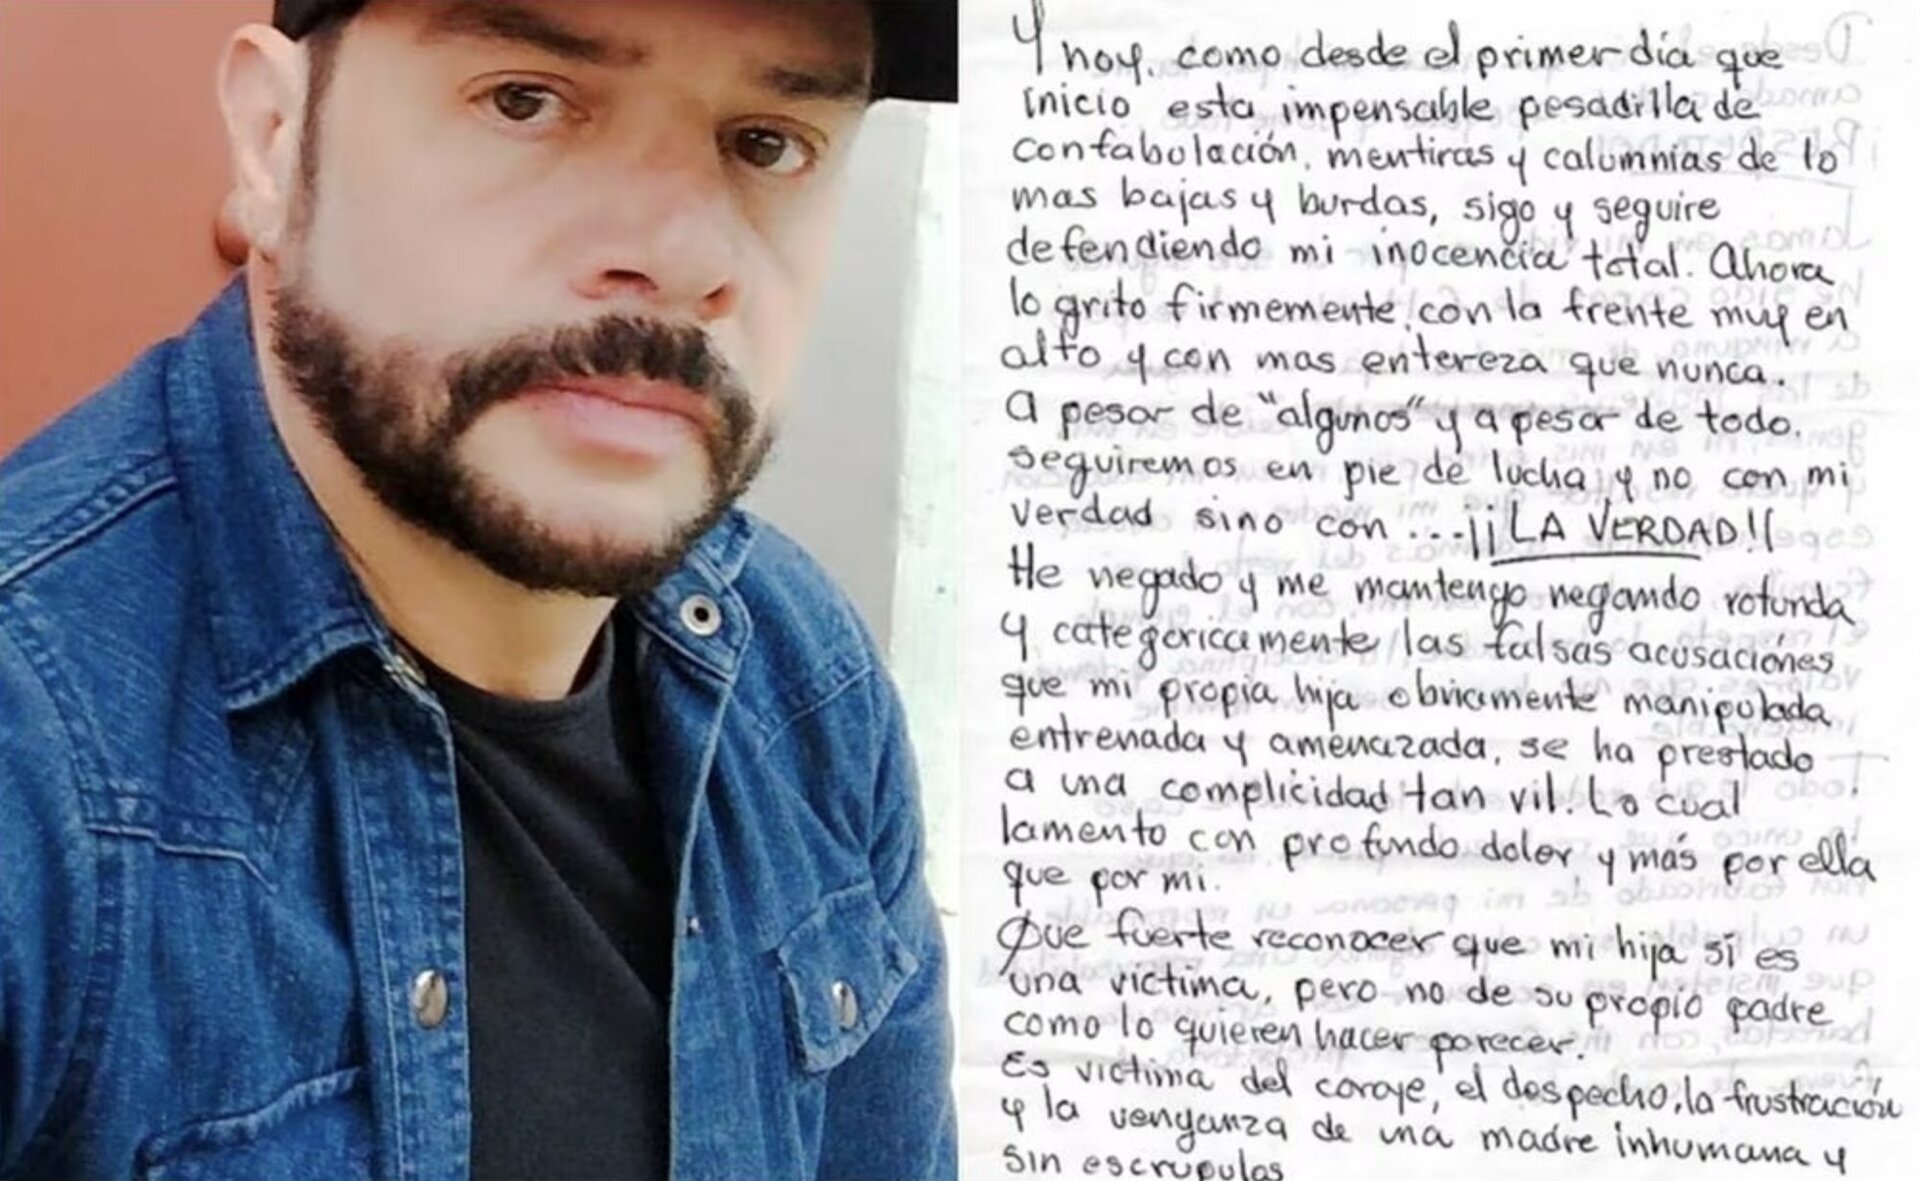 Y hoy, como desde el primer día que
inicio esta impensable pesadilla de
confabulación, mentiras y calumnias de lo
mas bajas y burdas, sigo y seguire
defendiendo mi inocencia total. Ahora
lo grito firmemente, con la frente muy en
alto y con mas entereza que nunca.
A pesar de "algunos" y a pesar de todo.
seguiremos en pie de lucha, y no con mi
verdad sino con ...¡¡LA VERDAD!!
He negado y me mantengo negando rotunda
y categoricamente las falsas acusaciónes
que mi propia hija obviamente manipulada
entrenada y amenazada, se ha prestado
a una complicidad tan vil. Lo cual
lamento con profundo dolor, y más por ella
que por mi.
Que fuerte reconocer que mi hija sí es
una victima, pero no de su propio padre
como lo quieren hacer parecer.
Es victima del coraje, el despecho, la frustración
y la venganza de una madre inhumana y
sin escrupulos